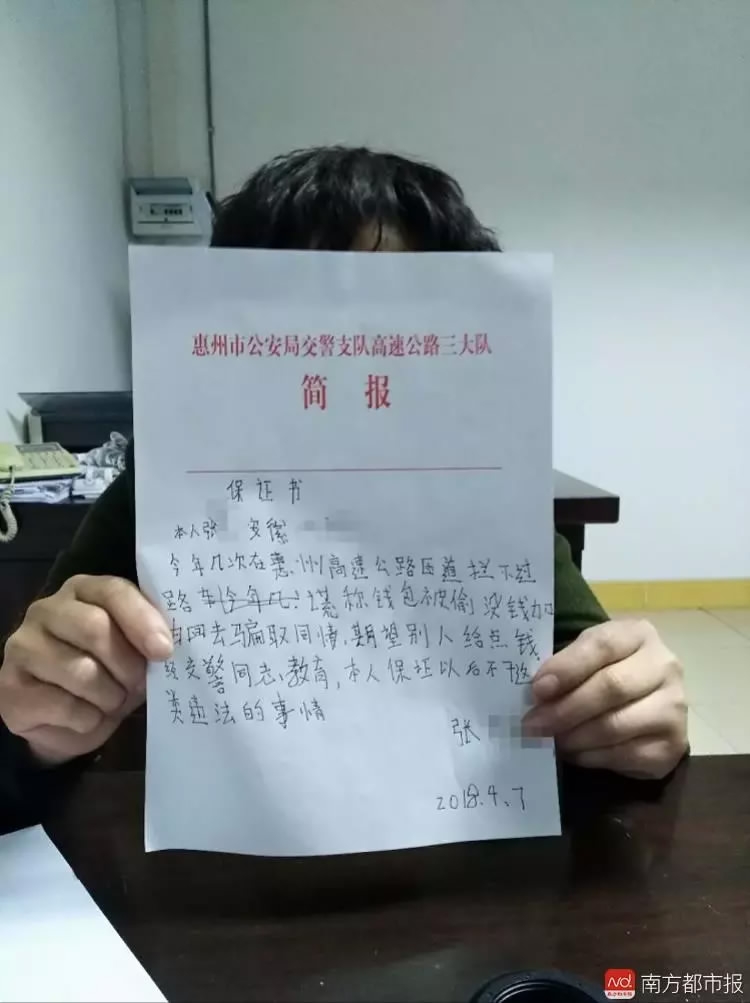 惠州市公安局交警支队高速公路三大队
简 报
保证书
本人张 安徽
今年几次在惠州高速公路匝道拦下过
路车今年几 谎称钱包被偷没钱加
油回去骗取同情,期望别人给点钱,
经交警同志教育,本人保证以后不干这
类违法的事情
张
2018.4.7
南方都市报